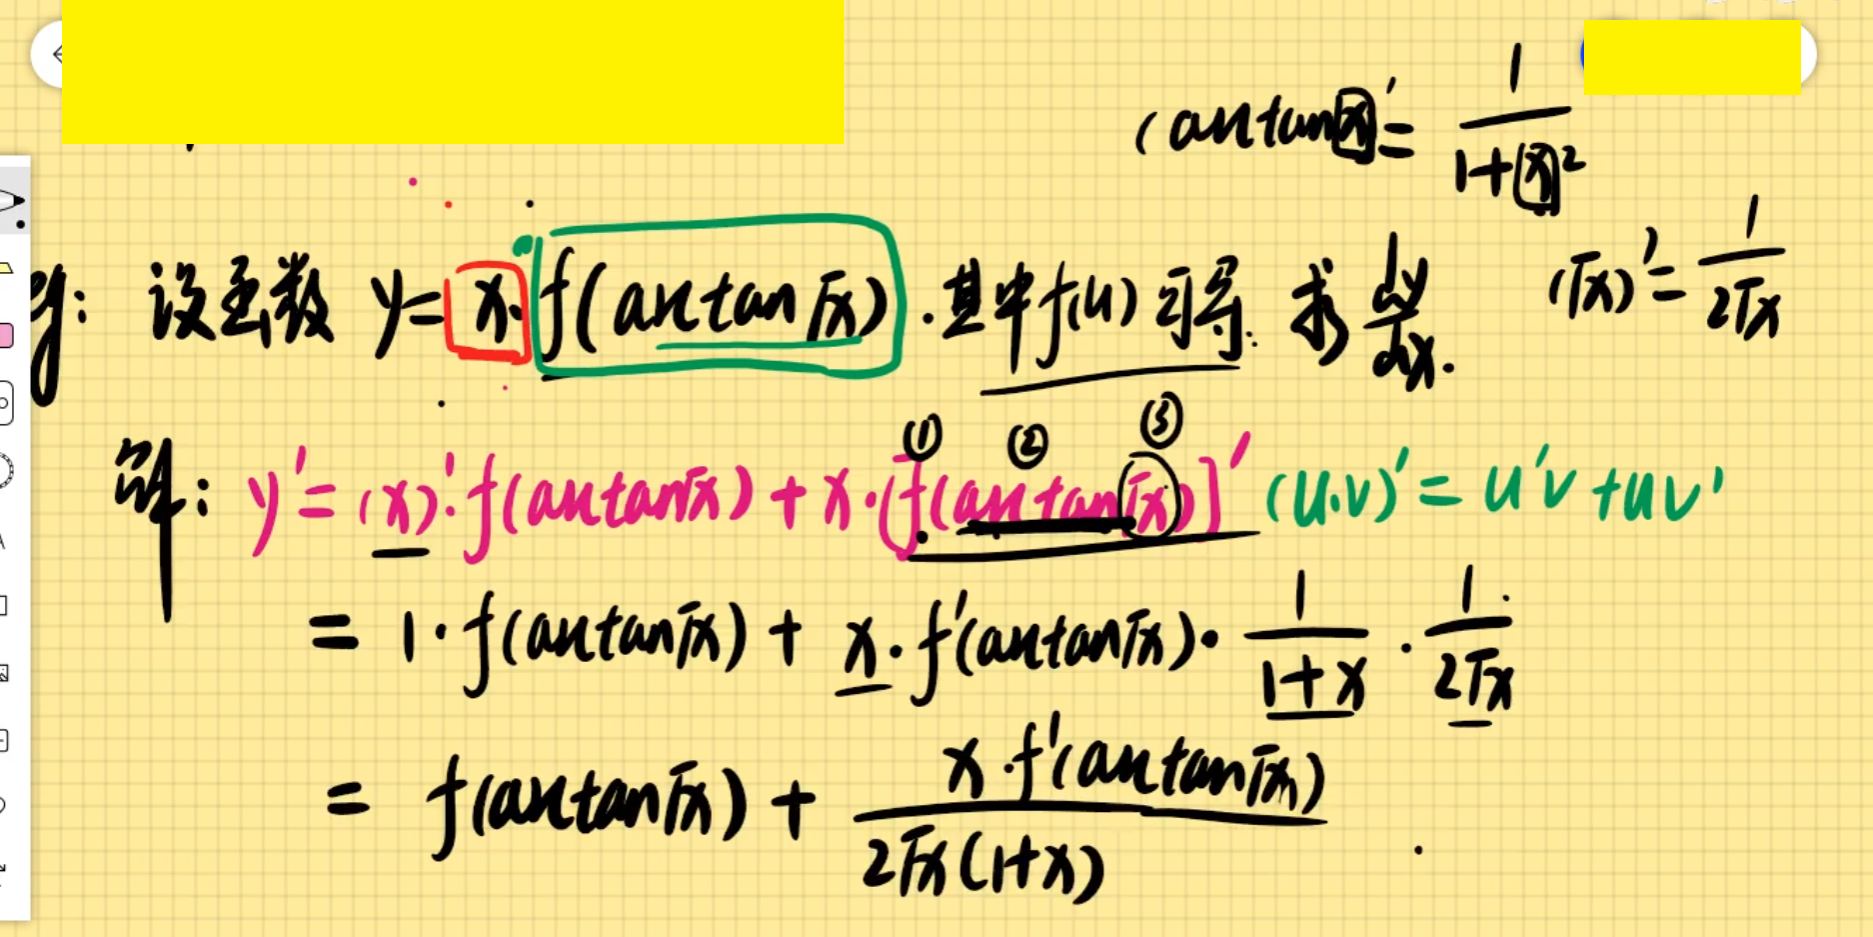 (arctan x)' = 1/(1+(x)²)
(√x)' = 1/(2√x)
eg: 设函数 y = x·f(arctan√x). 其中f(u)可导. 求 dy/dx.
① ② ③
解: y' = (x)'·f(arctan√x) + x·[f(arctan√x)]' (u·v)' = u'v + uv'
= 1·f(arctan√x) + x·f'(arctan√x)· 1/(1+x) · 1/(2√x)
= f(arctan√x) + x·f'(arctan√x)/(2√x(1+x))